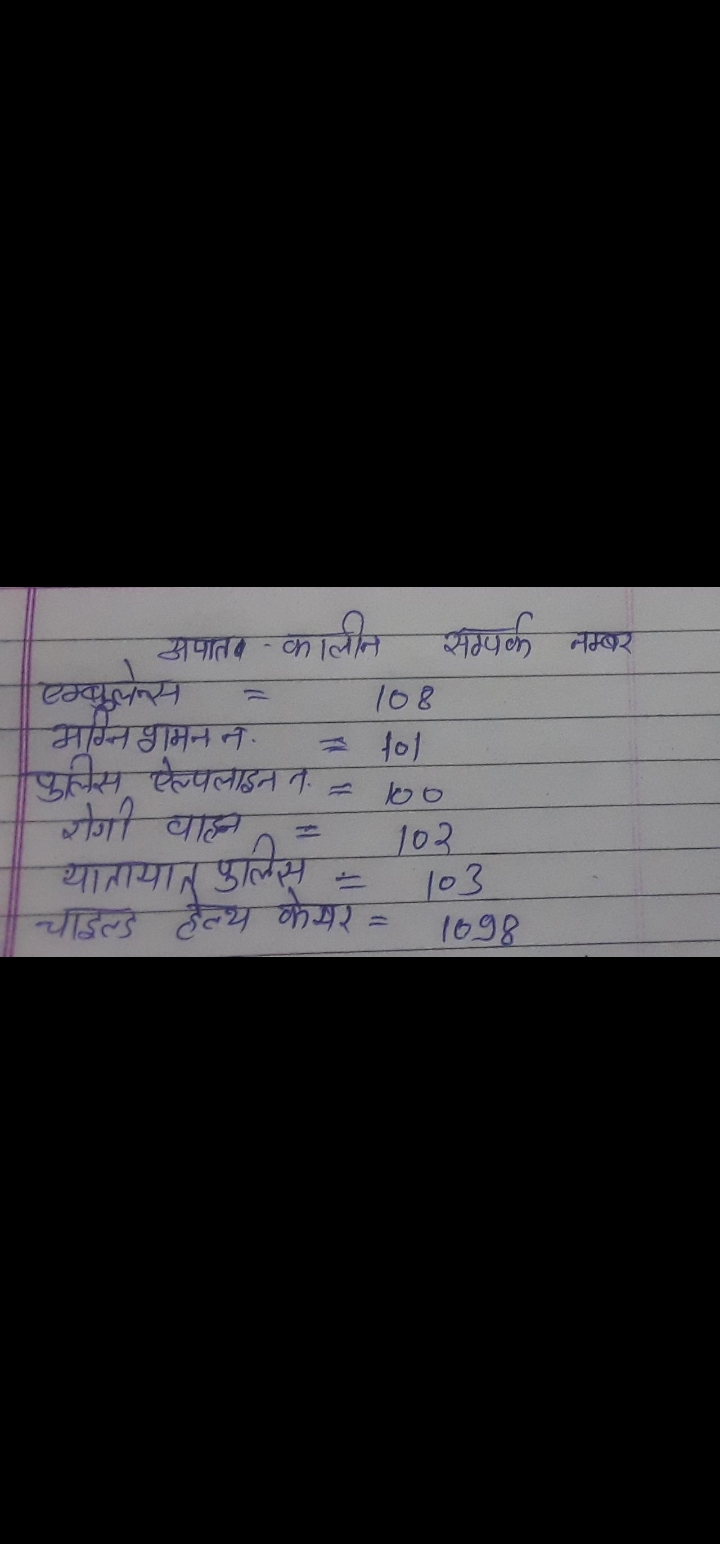 अपात - कालीन सम्पर्क नम्बर
एम्बुलेन्स = 108
अग्नि शमन न. = 101
पुलिस ऐल्पलाइन न. = 100
रोगी वाहन = 102
यातायात पुलिस = 103
चाइल्ड हेल्थ केयर = 1098